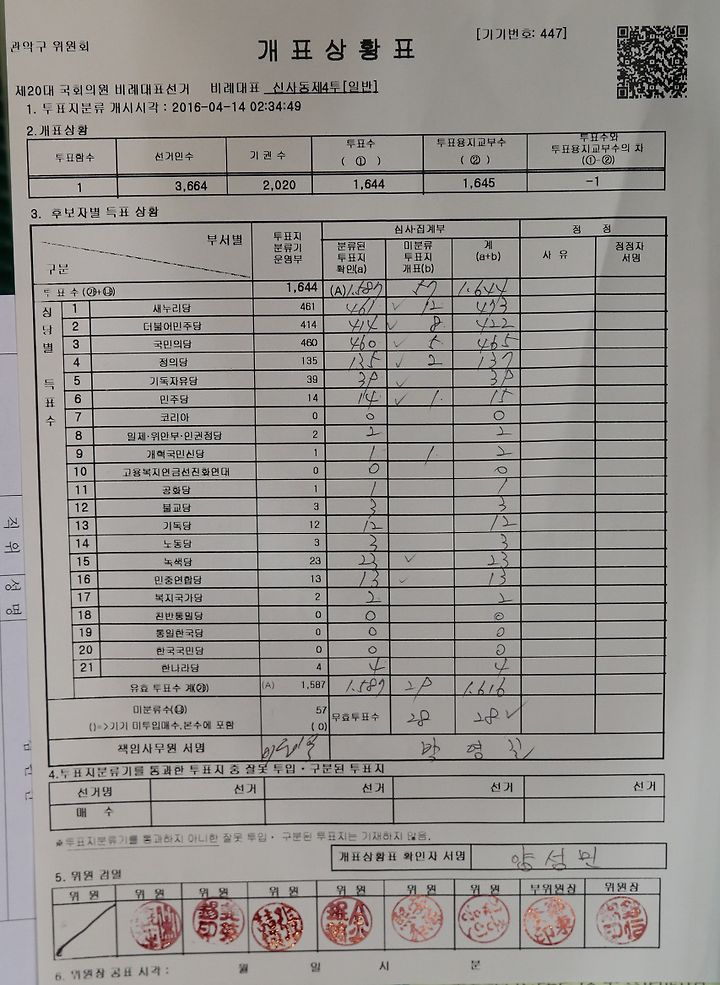 관악구 위원회
개표상황표
[기기번호: 447]
제20대 국회의원 비례대표선거 비례대표 신사동제4투[일반]
1. 투표지분류 개시시각 : 2016-04-14 02:34:49
2.개표상황
투표함수 선거인수 기권수 투표수 (①) 투표용지교부수 (②) 투표수와 투표용지교부수의 차 (①-②)
1 3,664 2,020 1,644 1,645 -1
3. 후보자별 득표 상황
구분 부서별 투표지 분류기 운영부 심사·집계부 정 정
분류된 투표지 확인(a) 미분류 투표지 개표(b) 계 (a+b) 사 유 정정자 서명
투표수(㉮+㉯) 1,644 (A)1.587 57 1.644
정당별 득표수
1 새누리당 461 461 ✓ 12 473
2 더불어민주당 414 414 ✓ 8 422
3 국민의당 460 460 ✓ 5 465
4 정의당 135 135 ✓ 2 137
5 기독자유당 39 39 ✓ 39
6 민주당 14 14 ✓ 1 15
7 코리아 0 0 0
8 일제·위안부·인권정당 2 2 2
9 개혁국민신당 1 1 1 2
10 고용복지연금선진화연대 0 0 0
11 공화당 1 1 1
12 불교당 3 3 3
13 기독당 12 12 12
14 노동당 3 3 3
15 녹색당 23 23 ✓ 23
16 민중연합당 13 13 ✓ 13
17 복지국가당 2 2 2
18 친반통일당 0 0 0
19 통일한국당 0 0 0
20 한국국민당 0 0 0
21 한나라당 4 4 4
유효 투표수 계(㉮) (A) 1,587 1.587 29 1.616
미분류수(㉯) 57 무효투표수 28 28 ✓
()=>기기 미투입매수,본수에 포함 ( 0)
책임사무원 서명
4.투표지분류기를 통과한 투표지 중 잘못 투입·구분된 투표지
선거명 선거 선거 선거 선거
매 수
※투표지분류기를 통과하지 아니한 잘못 투입· 구분된 투표지는 기재하지 않음.
개표상황표 확인자 서명 양성민
5. 위원 검열
위 원 위 원 위 원 위 원 위 원 위 원 위 원 부위원장 위원장
6. 위원장 공표 시각 : 월 일 시 분
직위
성명